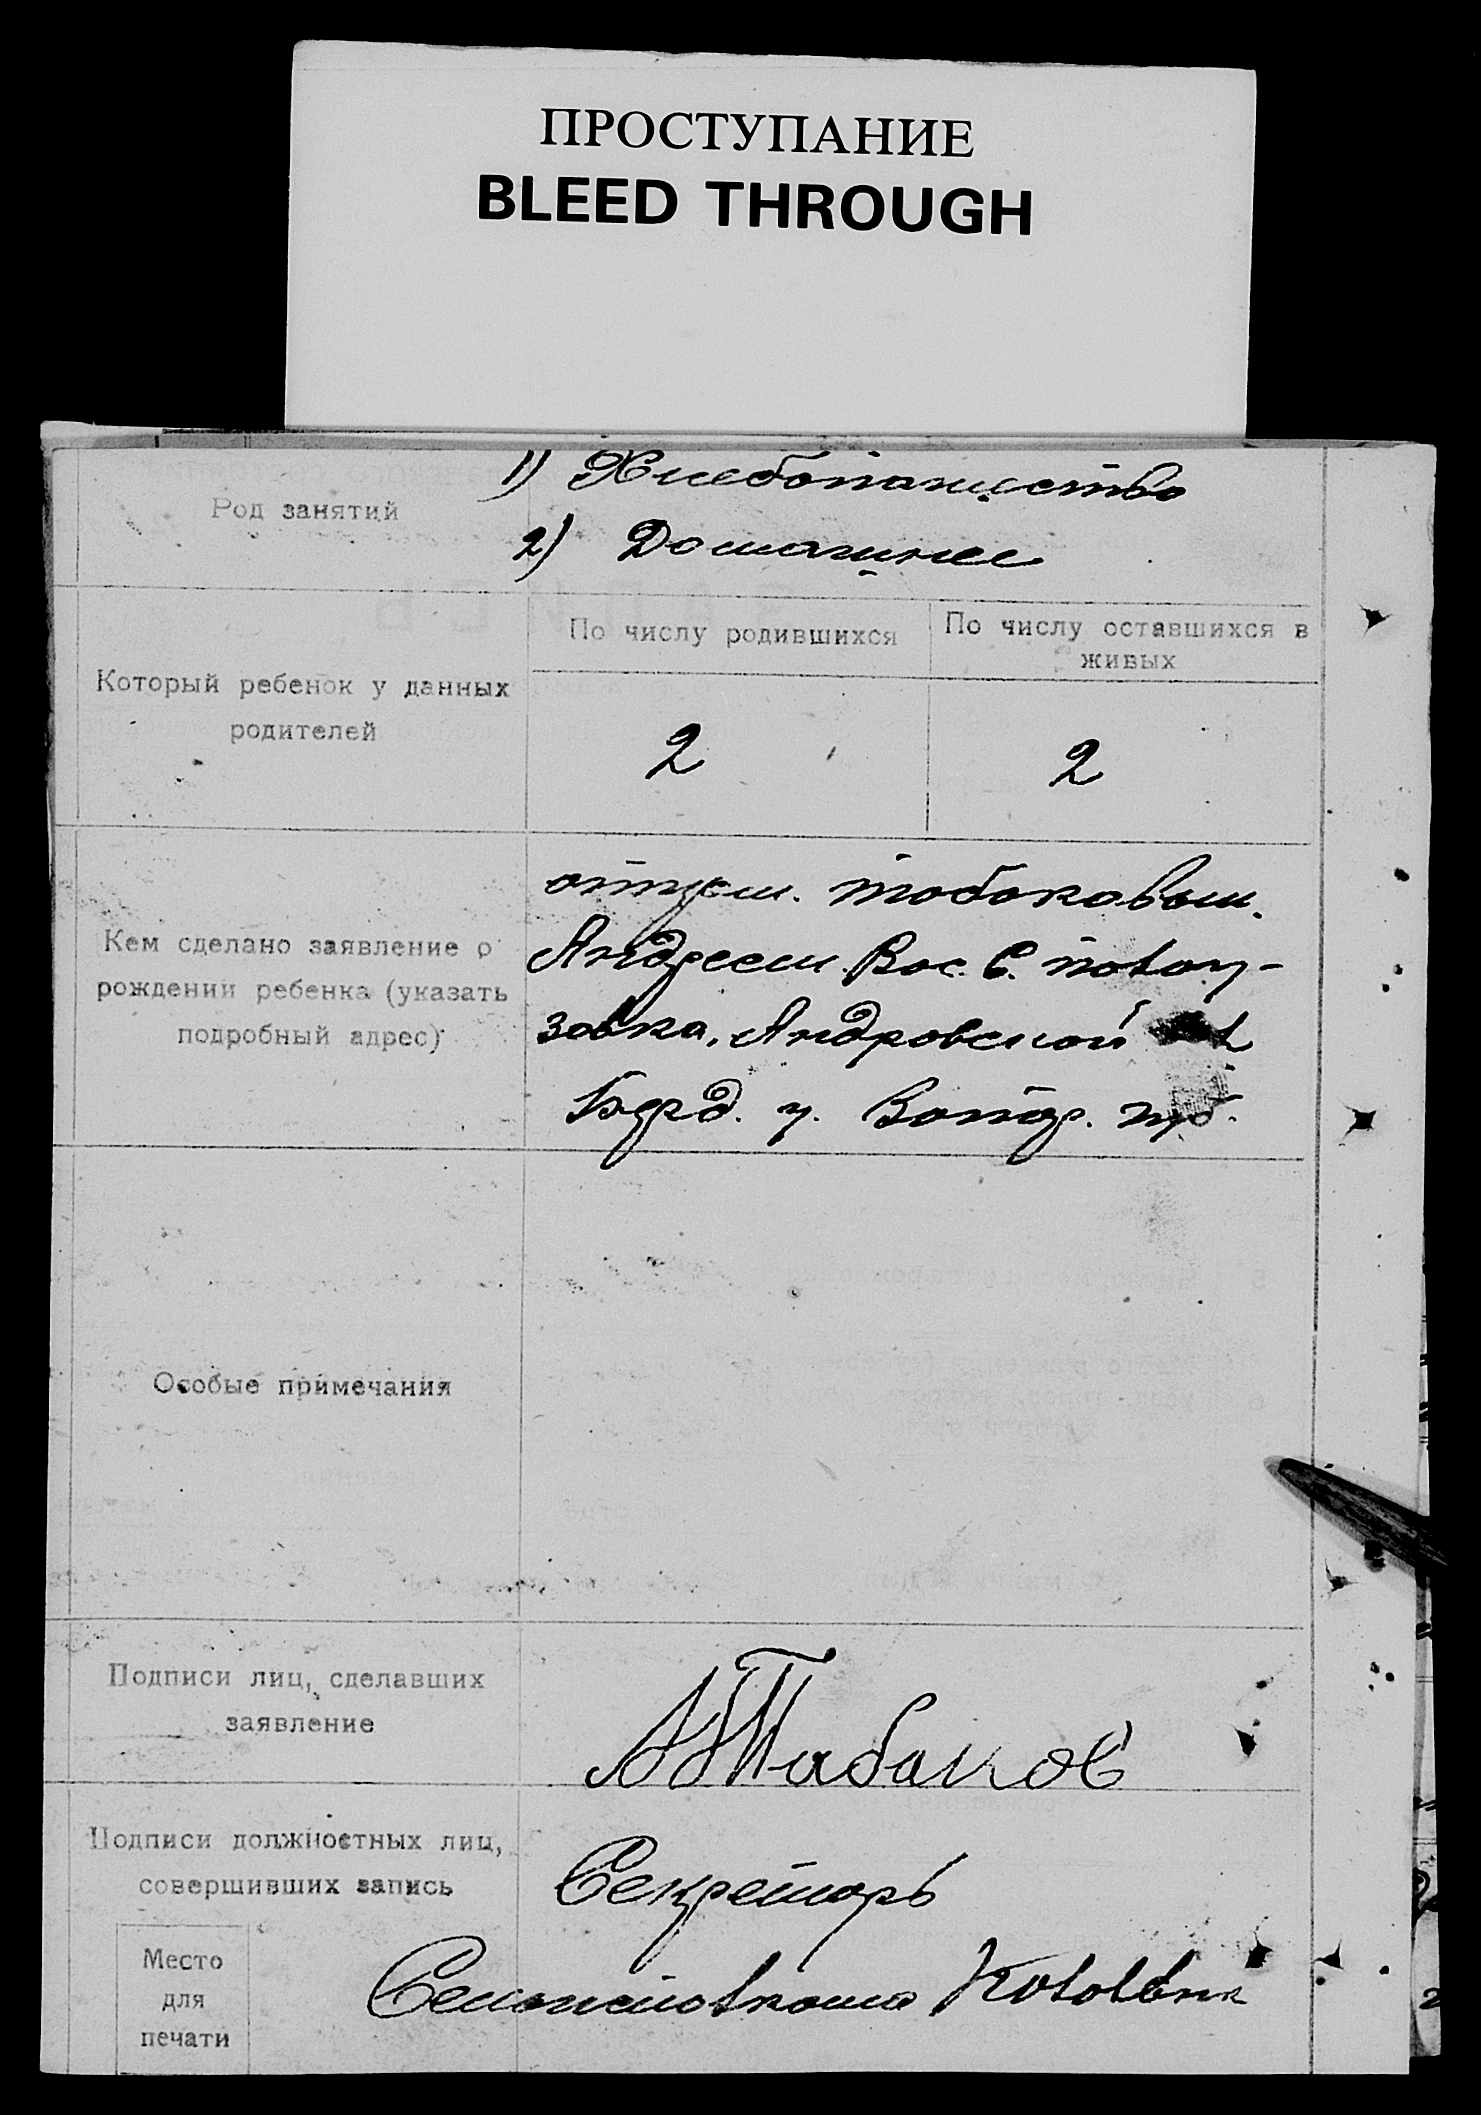 ПРОСТУПАНИЕ
BLEED THROUGH
Род занятий
1) Хлебопашество
2) Домашнее
Который ребенок у данных
родителей
По числу родившихся
По числу оставшихся в
живых
2
2
Кем сделано заявление о
рождении ребенка (указать
подробный адрес)
отцем. Тобоковым.
Андреем Вас. С.
Андровской
у. губ.
Особые примечания
Подписи лиц, сделавших
заявление
А Табаков
Подписи должностных лиц,
совершивших запись
Секретарь
Место
для
печати